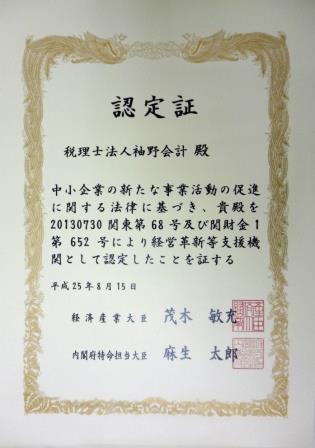 認定証
税理士法人袖野会計 殿
中小企業の新たな事業活動の促進
に関する法律に基づき、貴殿を
20130730 関東第 68 号及び関財金1
第 652 号により経営革新等支援機
関として認定したことを証する
平成25年8月15日
経済産業大臣 茂木 敏充
内閣府特命担当大臣 麻生 太郎